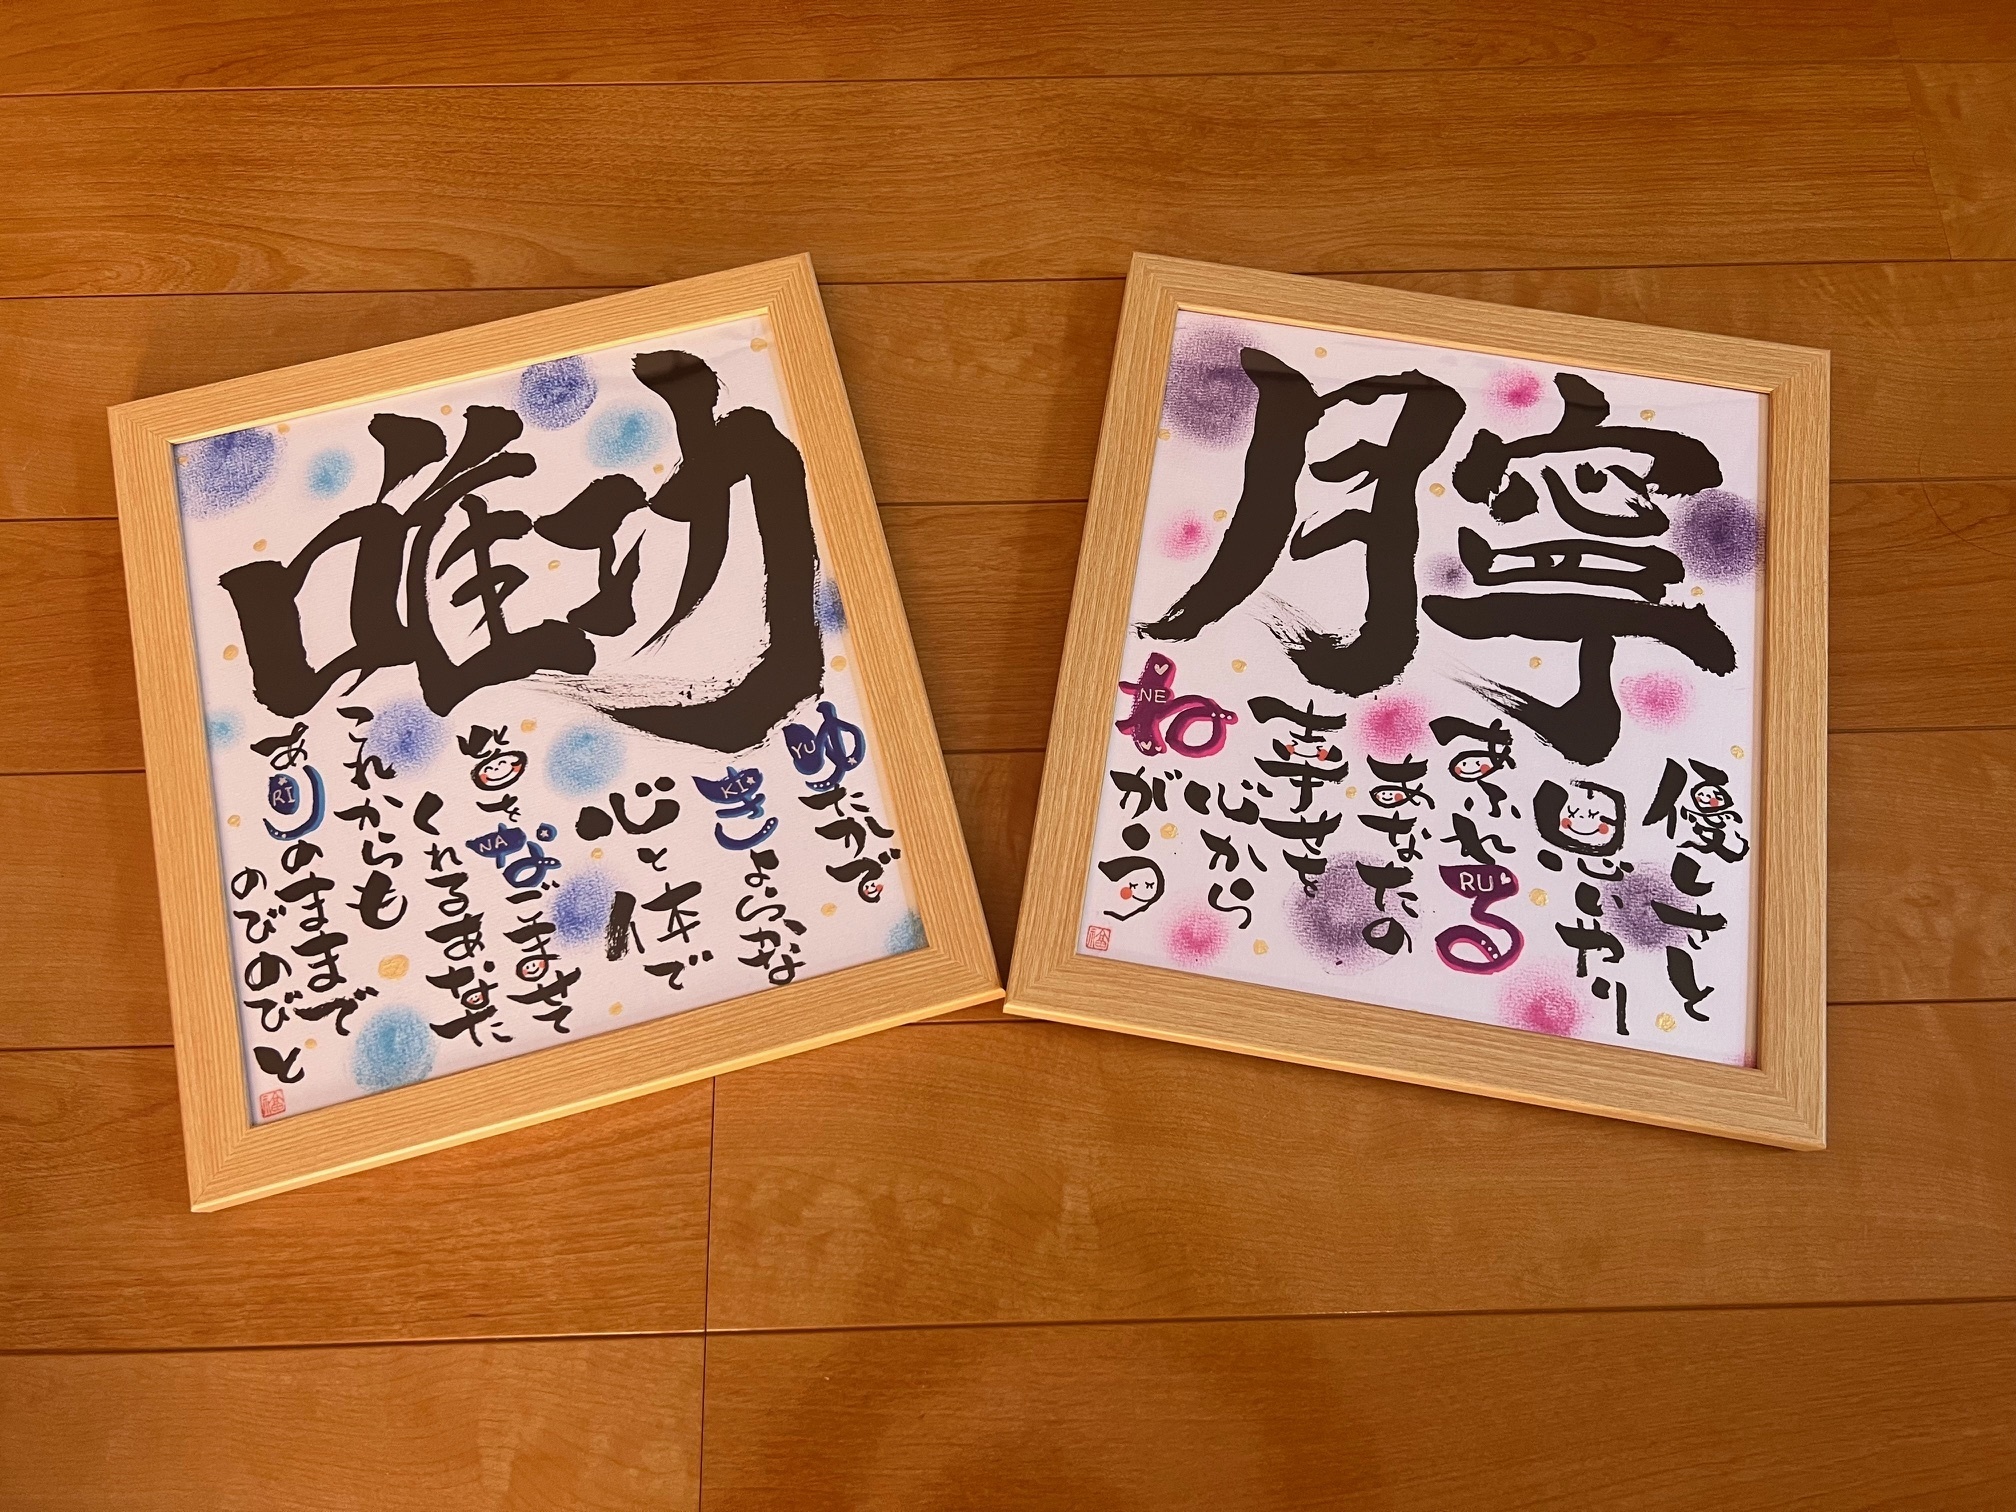 唯功
ゆたかで
YU
きよらかな
KI
心と体で
皆をなごませて
NA
くれるあなた
これからも
ありのままで
RI
のびのびと
月寧
優しさと
思いやり
あふれる
RU
あなたの
幸せを
心から
ねがう
NE